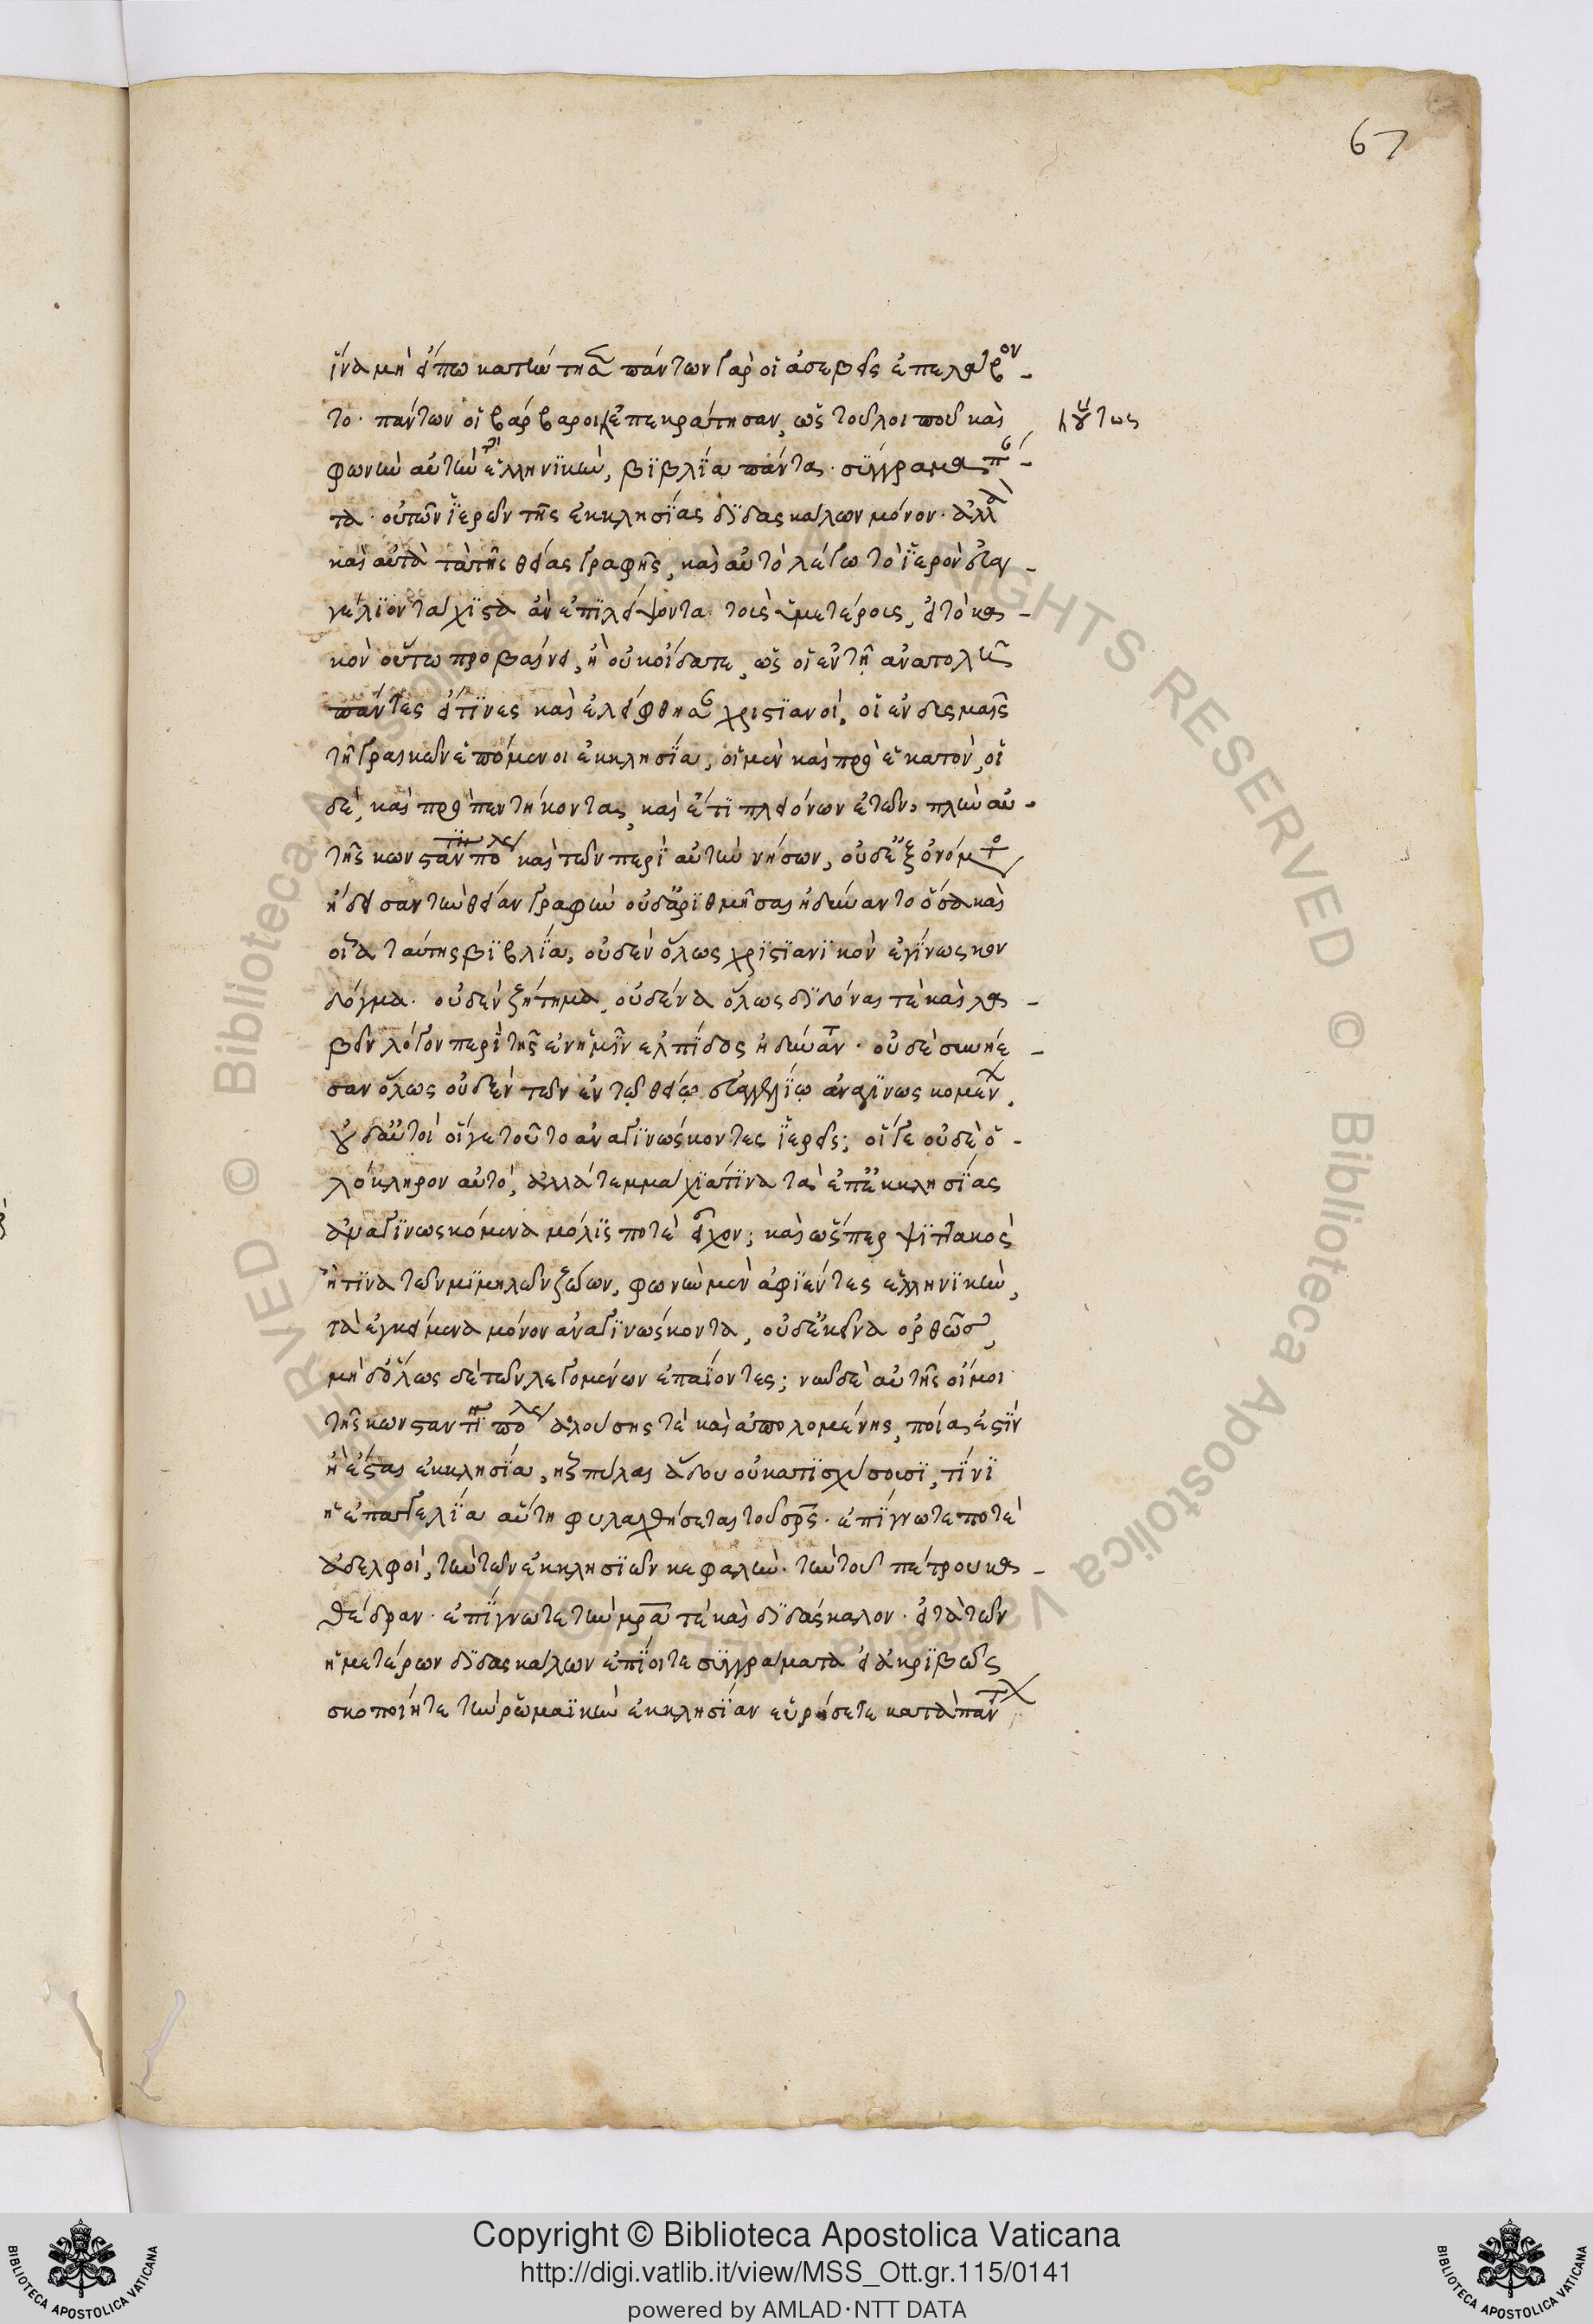 67
ἵνα μὴ εἴπω κατων τησα πάντων γὰρ οἱ ἀσεβεῖς ἐπελάβον-
το· πάντων οἱ βάρβαροι ἐπεκράτησαν, ὡς τοῦ λοιποῦ καὶ
οὕτως
φωνὴν αὐτὴν ἑλληνικὴν, βιβλία πάντα· συγγράμματα πάν-
τα· οὐ τῶν ἱερῶν τῆς ἐκκλησίας διδασκάλων μόνον· ἀλλὰ
καὶ αὐτὰ τὰ τῆς θείας γραφῆς, καὶ αὐτὸ λέγω τὸ ἱερὸν εὐαγ-
γέλιον τάχιστα ἂν ἐπιλείψοντα τοῖς ἡμετέροις, εἰ τὸ κα-
κὸν οὕτω προβαίνει, ἢ οὐκ οἴδατε, ὡς οἱ ἐν τῇ ἀνατολικῇ
πάντες εἴ τινες καὶ ἐλείφθησαν χριστιανοὶ, οἱ ἐν δεσμοῖς
τῇ γραικῶν ἑπόμενοι ἐκκλησίᾳ, οἱ μὲν καὶ πρὸ ἑκατὸν, οἱ
δὲ, καὶ πρὸ πεντήκοντα, καὶ ἔτι πλειόνων ἐτῶν, πλὴν αὐ-
τῆς κωνσταντινουπόλεως καὶ τῶν περὶ αὐτὴν νήσων, οὐδ' ἐξ ὀνόματος
ᾔδεισαν τὴν θείαν γραφὴν οὐδ' ἀριθμῆσαι ἠδύναντο ὅσα καὶ
οἷα ταύτης βιβλία, οὐδὲν ὅλως χριστιανικὸν ἐγίνωσκον
δόγμα· οὐδὲν ζήτημα, οὐδένα ὅλως διδόναι τὲ καὶ λα-
βεῖν λόγον περὶ τῆς ἐν ἡμῖν ἐλπίδος ἠδύναντο· οὐδὲ συνίε-
σαν ὅλως οὐδὲν τῶν ἐν τῷ θείῳ εὐαγγελίῳ ἀναγινωσκομένων,
οὐδ' αὐτοὶ οἵ γε τοῦτο ἀναγινώσκοντες ἱερεῖς; οἵ γε οὐδὲ ὁ-
λόκληρον αὐτό, ἀλλὰ τεμμάχιά τινα τὰ ἐπ' ἐκκλησίας
ἀναγινωσκόμενα μόλις ποτὲ εἶχον; καὶ ὥσπερ ψιττακὸς
ἤ τινα τῶν μιμηλῶν ζώων, φωνὴν μὲν ἀφιέντες ἑλληνικὴν,
τὰ ἐγκείμενα μόνον ἀναγινώσκοντα, οὐδ' ἐκεῖνα ὀρθῶς,
μηδ' ὅλως δὲ τῶν λεγομένων ἐπαΐοντες; νῦν δὲ αὐτῆς οἴμοι
τῆς κωνσταντινουπόλεως ἁλούσης τὲ καὶ ἀπολομένης, ποία ἐστὶν
ἡ ἔσται ἐκκλησία, ἧς πύλαι ἅδου οὐ κατισχύσουσι, τίνι
ἡ ἐπαγγελία αὕτη φυλαχθήσεται τοῦ σρς· ἐπίγνωτε ποτὲ
ἀδελφοί, τὴν τῶν ἐκκλησιῶν κεφαλὴν· τὴν τοῦ πέτρου κα-
θέδραν· ἐπίγνωτε τὴν μρα τὲ καὶ διδάσκαλον· εἰ τὰ τῶν
ἡμετέρων διδασκάλων ἐπίοιτε συγγράματα εἰ ἀκριβῶς
σκοποίητε τὴν ῥωμαϊκὴν ἐκκλησίαν εὑρήσετε κατὰ πάντα
Copyright © Biblioteca Apostolica Vaticana
http://digi.vatlib.it/view/MSS_Ott.gr.115/0141
powered by AMLAD·NTT DATA
BIBLIOTECA APOSTOLICA VATICANA
BIBLIOTECA APOSTOLICA VATICANA